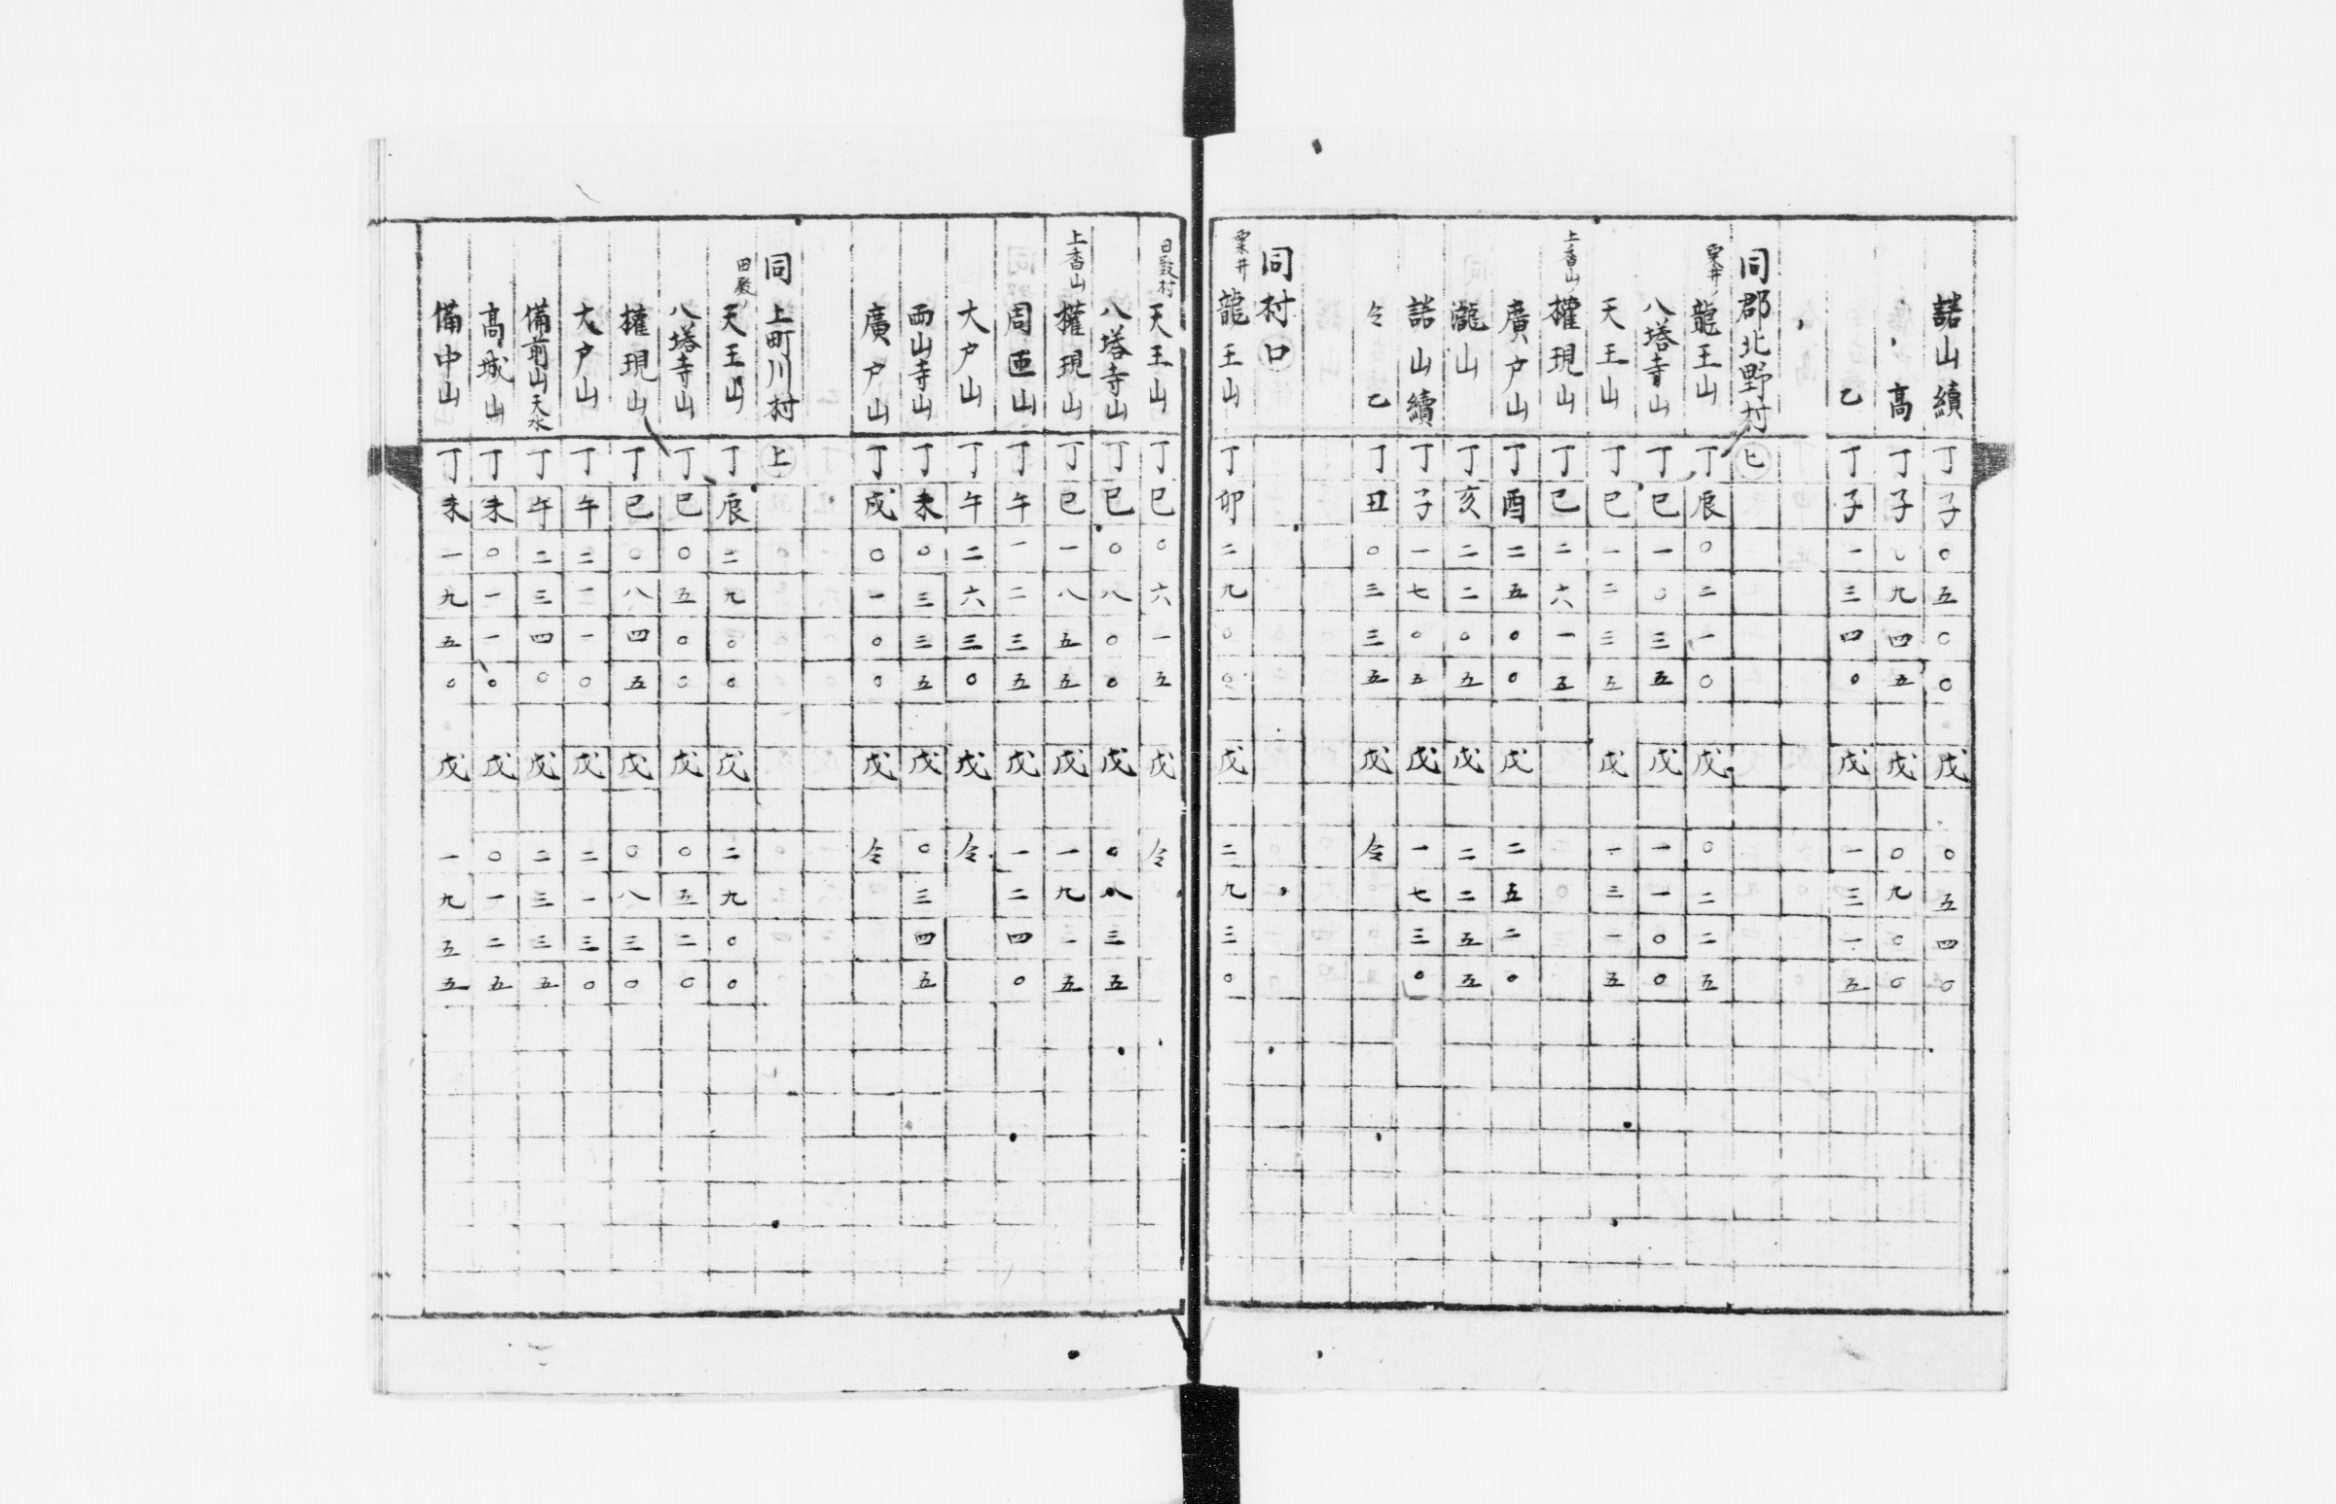 諸山續 丁子〇五〇〇 戊〇五四〇
高 丁子〇九四五 戊〇九〇〇
乙 丁子一三四〇 戊一三一五
同郡北野村 ㊤
粟井ノ龍王山 丁辰〇二一〇 戊〇二二五
八塔寺山 丁巳一〇三五 戊一一〇〇
天王山 丁巳一二三五 戊一三一五
上香山ノ權現山 丁巳二六一五
廣戸山 丁酉二五〇〇 戊二五二〇
瀧山 丁亥二二〇五 戊二二五五
諸山續 丁子一七〇五 戊一七三〇
仝 乙 丁丑〇三三五 戊仝
同村 口
粟井龍王山 丁卯二九〇〇 戊二九三〇
日殿村天王山 丁巳〇六一五 戊仝
八塔寺山 丁巳〇八〇〇 戊〇八三五
上香山權現山 丁巳一八五五 戊一九一五
周匝山 丁午一二三五 戊一二四〇
大戸山 丁午二六三〇 戊仝
西山寺山 丁未〇三三五 戊〇三四五
廣戸山 丁戌〇一〇〇 戊仝
同 上町川村 上
田殿ノ天王山 丁辰二九〇〇 戊二九〇〇
八塔寺山 丁巳〇五〇〇 戊〇五二〇
權現山 丁巳〇八四五 戊〇八三〇
大戸山 丁午二一一〇 戊二一三〇
備前山天水 丁午二三四〇 戊二三三五
高城山 丁未〇一一〇 戊〇一二五
備中山 丁未一九五〇 戊一九五五